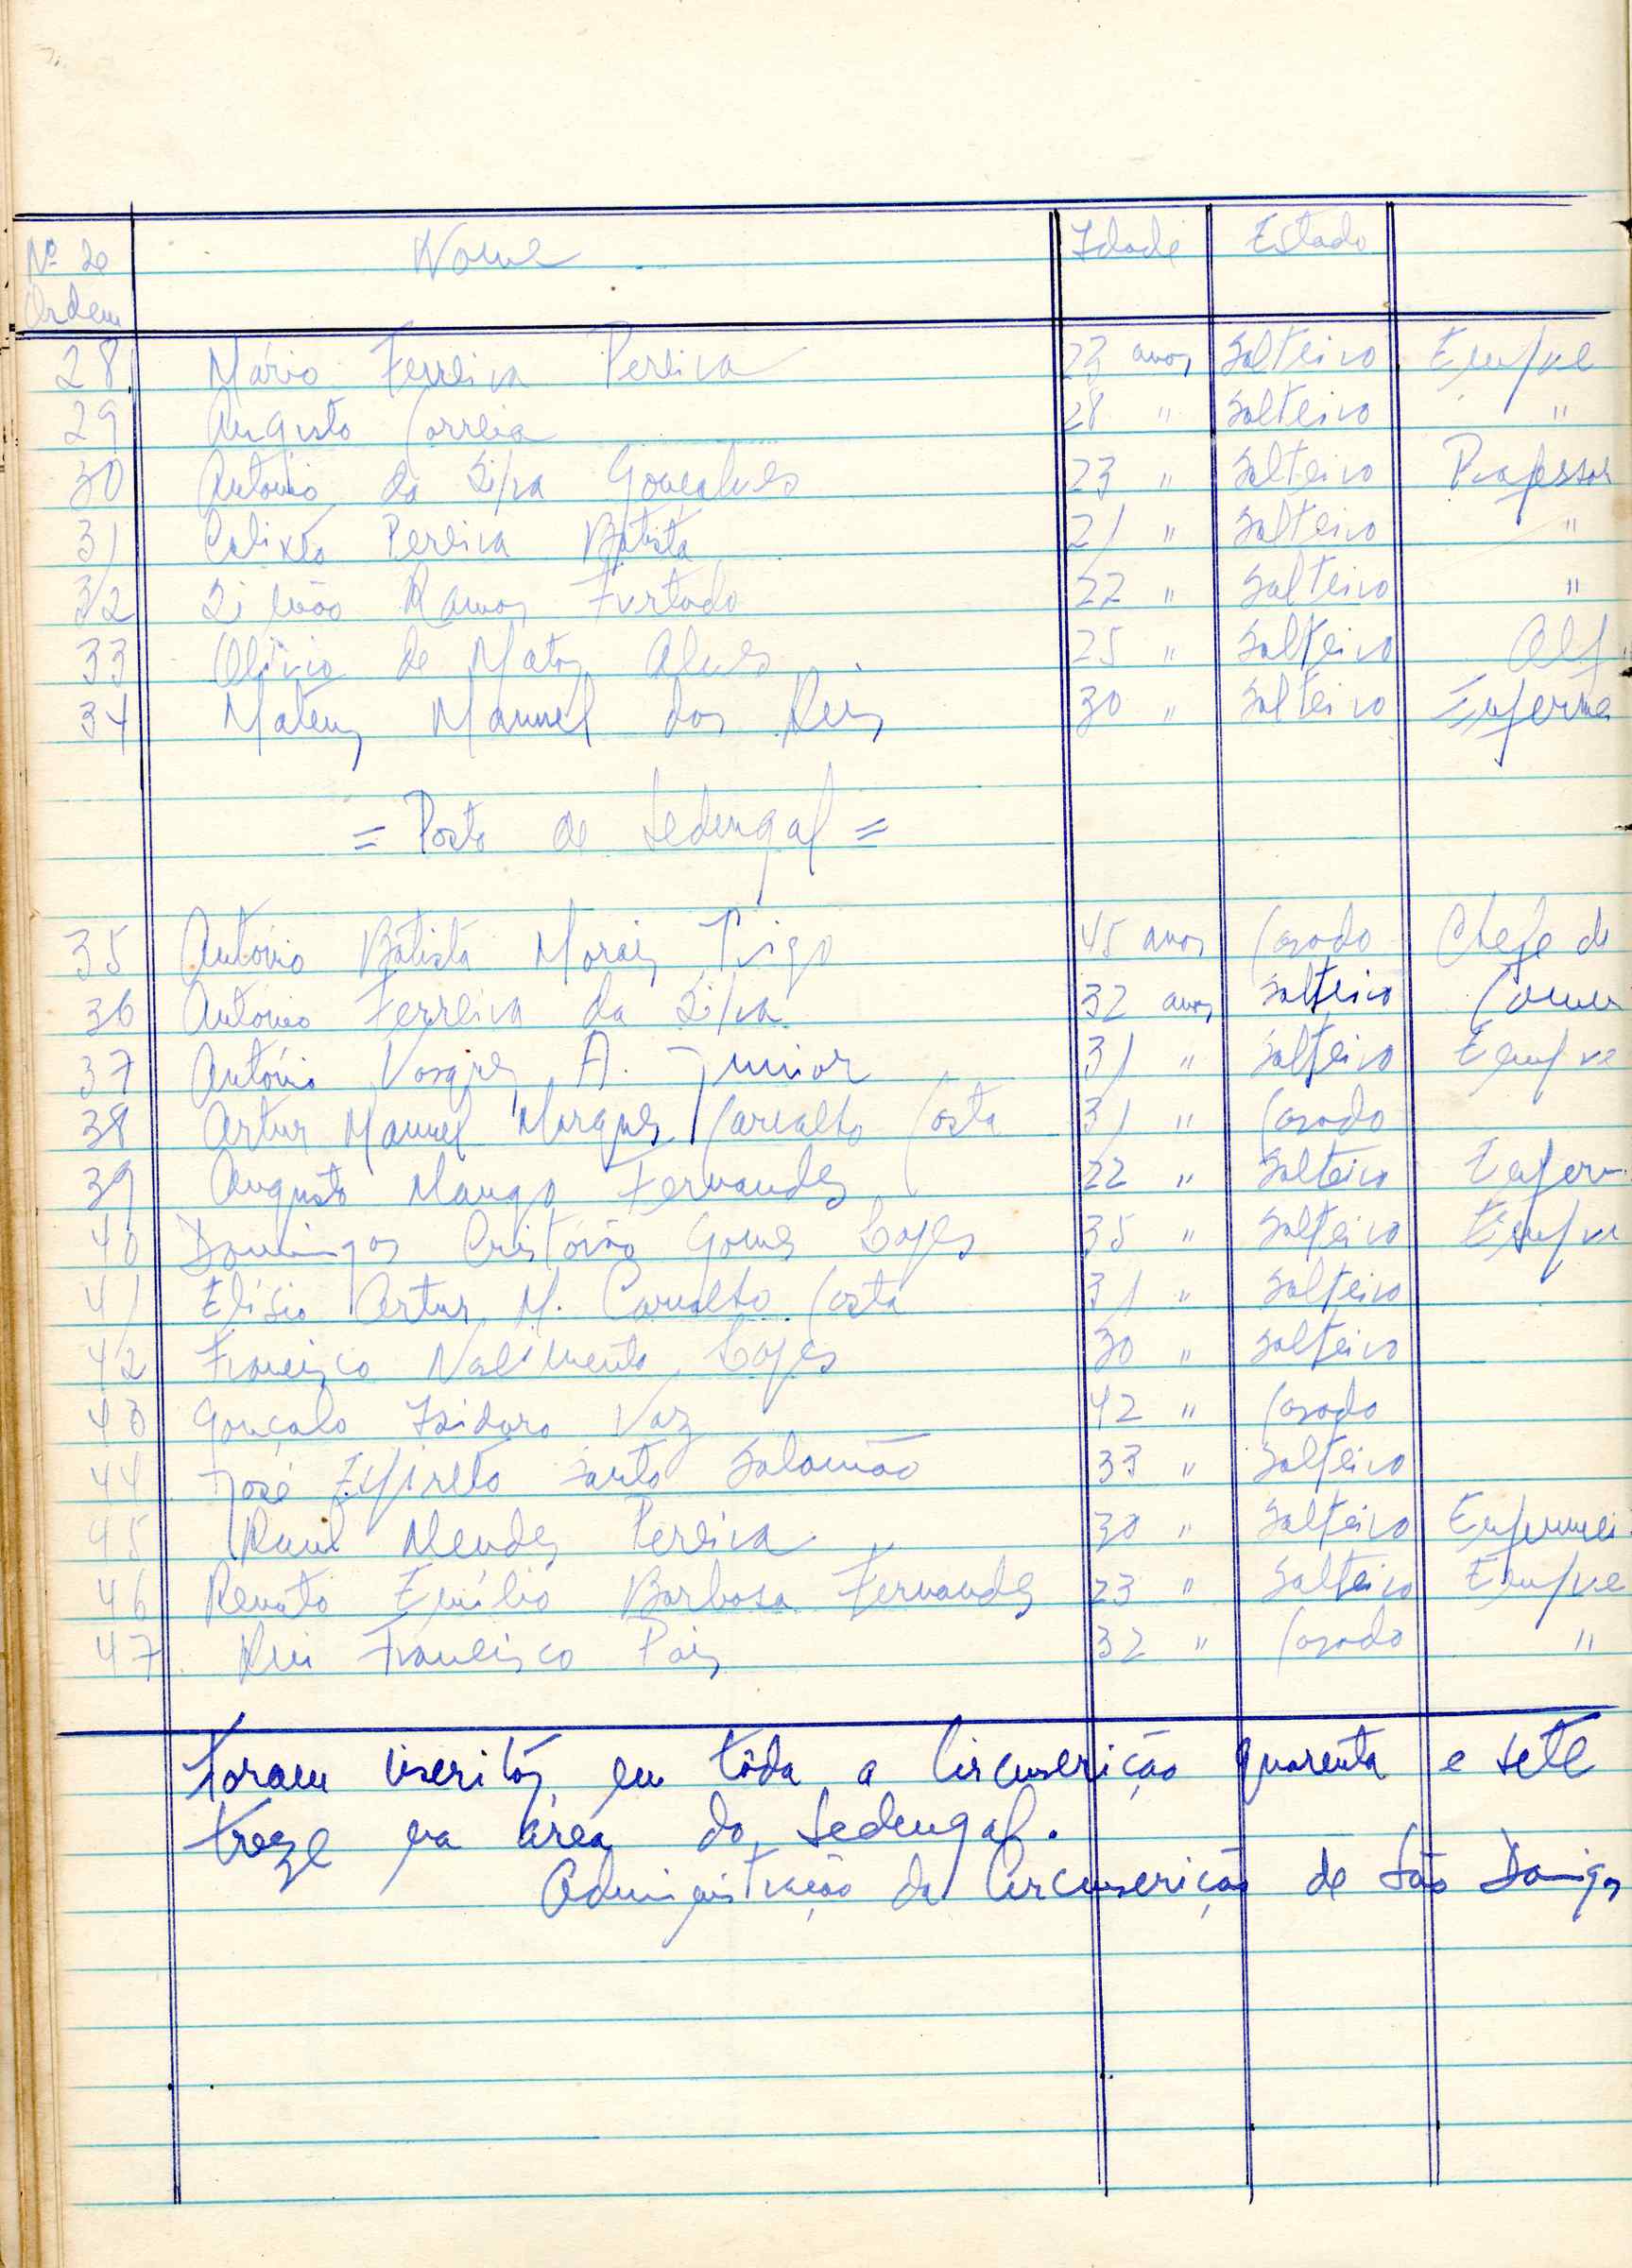 Nº de Ordem Nome Idade Estado
28 Mário Ferreira Pereira 23 anos Solteiro Empre
29 Augusto Correia 28 " Solteiro "
30 António da Silva Gonçalves 23 " Solteiro Professor
31 Calixto Pereira Batista 21 " Solteiro "
32 Simão Ramos Furtado 22 " Solteiro "
33 Olívio de Matos Alves 25 " Solteiro Alf
34 Mateus Manuel dos Reis 30 " Solteiro Enferme
= Posto de Sedengal =
35 António Batista Morais Trigo 45 anos Casado Chefe de
36 António Ferreira da Silva 32 anos Solteiro Comer
37 António Vasques A. Junior 31 " Solteiro Empre
38 Artur Manuel Marques Carvalho Costa 31 " Casado
39 Augusto Mango Fernandes 22 " Solteiro Enferm
40 Domingos Cristóvão Gomes Lopes 35 " Solteiro Empre
41 Elísio Artur M. Carvalho Costa 31 " Solteiro
42 Francisco Nascimento Lopes 30 " Solteiro
43 Gonçalo Isidoro Vaz 42 " Casado
44 José Espireto Santo Salomão 33 " Solteiro
45 Raul Mendes Pereira 30 " Solteiro Enfermei
46 Renato Emílio Barbosa Fernandes 23 " Solteiro Empre
47 Rui Francisco Pais 32 " Casado "
Foram inscritos em tôda a Circunscrição quarenta e sete
treze na área do Sedengal.
Administração da Circunscrição de São Domingos